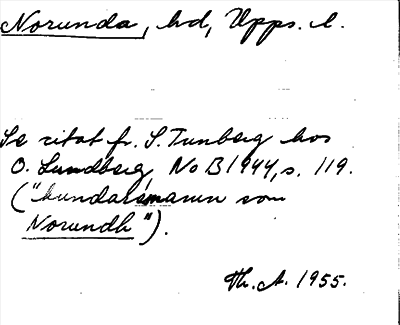 Norunda, hd, Upps. l.
Se citat fr. S. Tunberg hos
O. Lundberg, NoB 1944, s. 119.
("hundaresnamn som
Norundh").
Th. A. 1955.